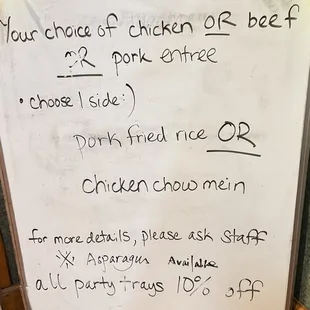 Your choice of chicken OR beef
OR pork entree
• choose 1 side:)
pork fried rice OR
Chicken chow mein
for more details, please ask staff
※ Asparagus Available
all party trays 10% off